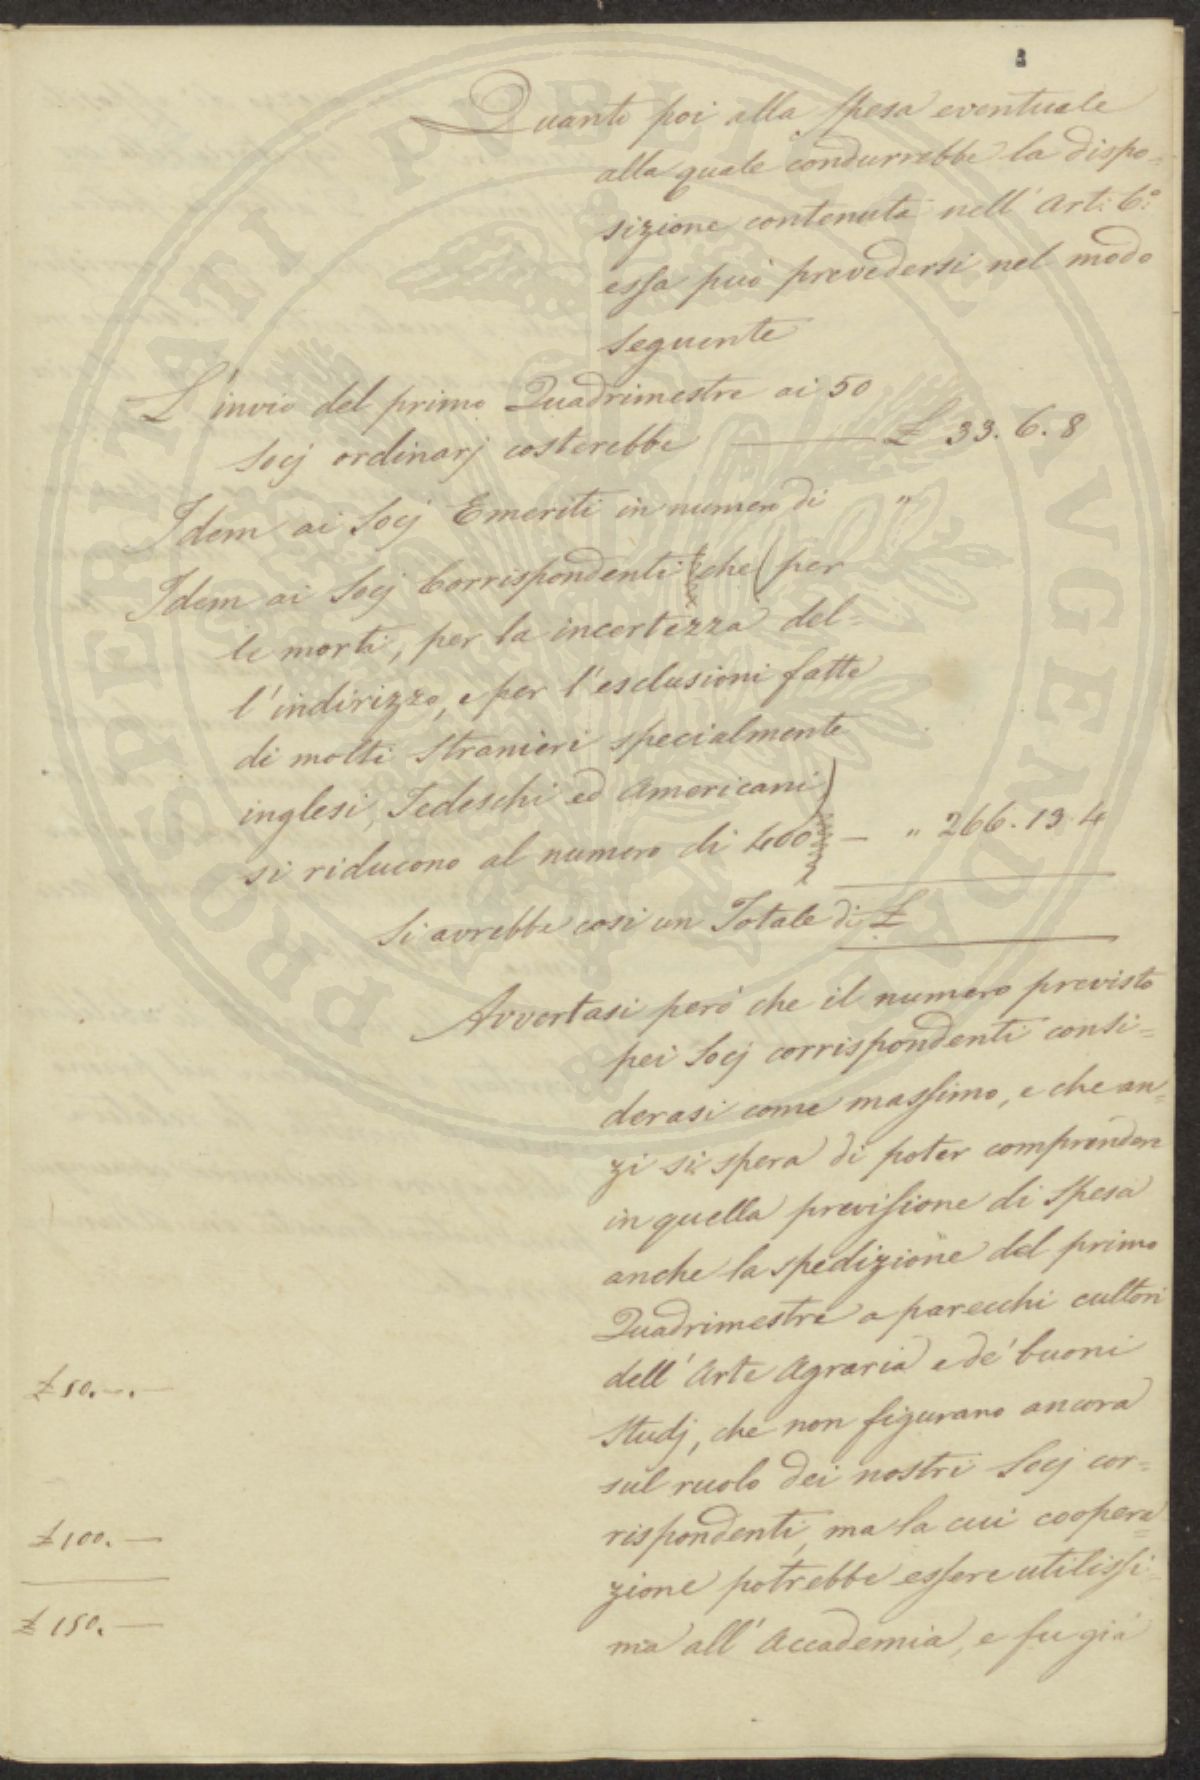 Quanto poi alla spesa eventuale
alla quale condurrebbe la dispo=
sizione contenuta nell' Art: 6.°
essa può prevedersi nel modo
seguente
L' invio del primo Quadrimestre ai 50
Socj ordinarj costerebbe — £ 33. 6. 8
Idem ai Socj Emeriti in numero di "
Idem ai Socj Corrispondenti (che (per
le morti, per la incertezza del=
l'indirizzo, e per l'esclusioni fatte
di molti Stranieri specialmente
inglesi, Tedeschi ed Americani)
si riducono al numero di 400) — " 266. 13. 4
Si avrebbe così un Totale di £
Avvertasi però che il numero previsto
pei Socj corrispondenti consi=
derasi come massimo, e che an=
zi si spera di poter comprendere
in quella previsione di Spesa
anche la spedizione del primo
Quadrimestre a parecchi cultori
dell' Arte Agraria e de' buoni
Studj, che non figurano ancora
sul ruolo dei nostri Socj cor=
rispondenti, ma la cui coopera=
zione potrebbe essere utilissi=
ma all' Accademia, e fu già
£ 50. –. –
£ 100. –
£ 150. –
PROSPERITATI PVBLICAE AVGENDAE